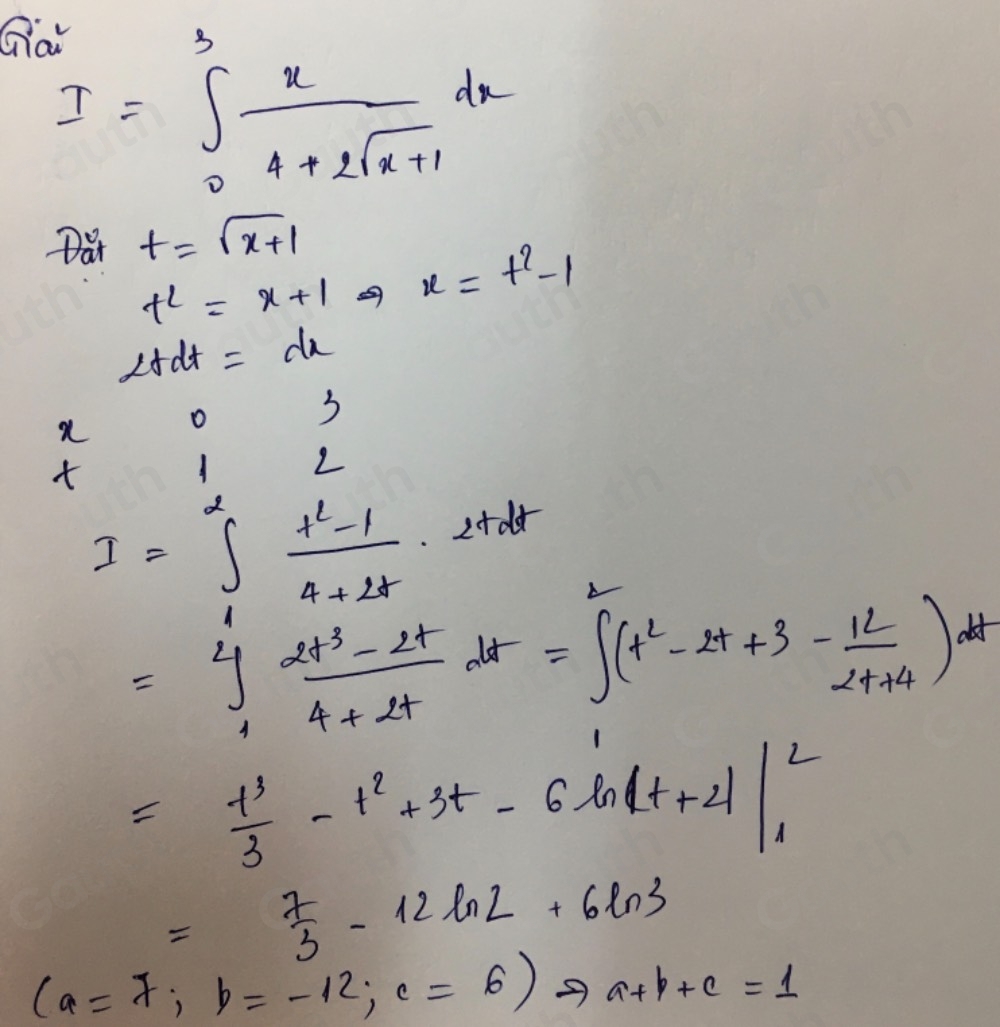 Giải
I = ∫₀³ x / (4 + 2√(x+1)) dx
Đặt t = √(x+1)
t² = x + 1 ⇒ x = t² - 1
2tdt = dx
x 0 3
t 1 2
I = ∫₁² (t² - 1) / (4 + 2t) . 2tdt
= ∫₁² (2t³ - 2t) / (4 + 2t) dt = ∫₁² (t² - 2t + 3 - 12 / (2t + 4)) dt
= t³/3 - t² + 3t - 6 ln|t + 2| |₁²
= 7/3 - 12 ln2 + 6 ln3
(a = 7; b = -12; c = 6) ⇒ a+b+c = 1